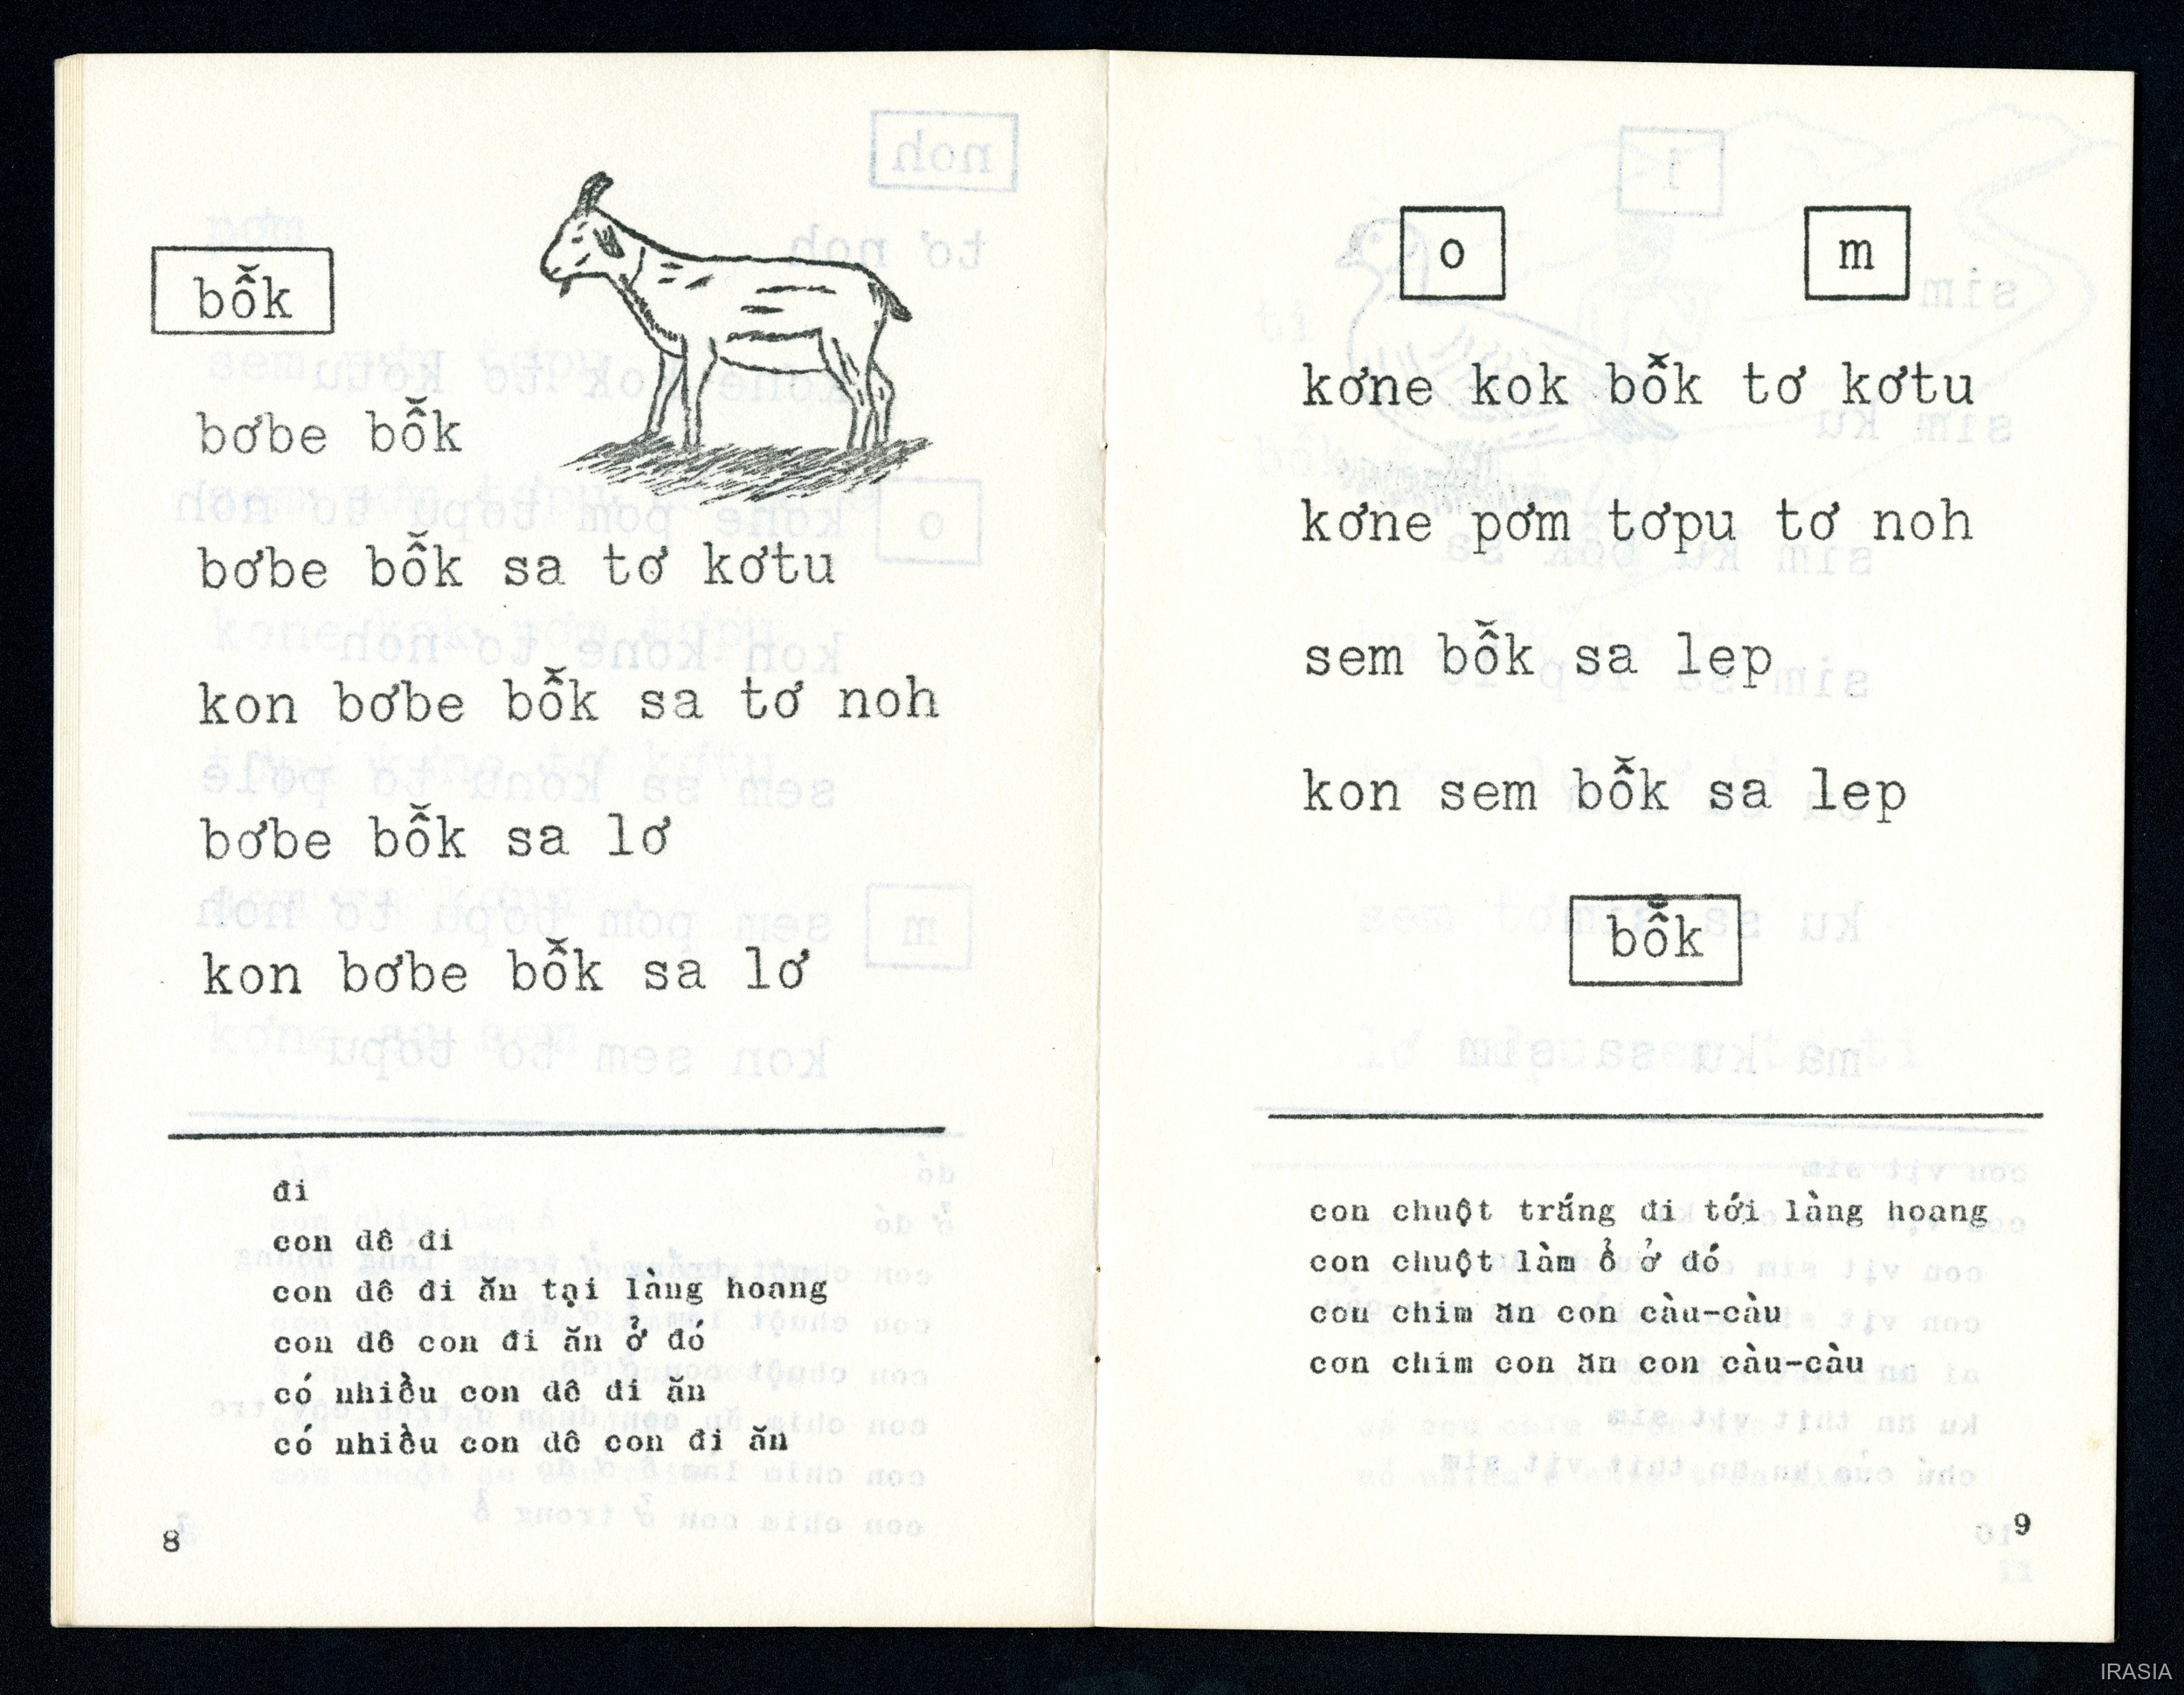 bô̌k
bơbe bô̌k
bơbe bô̌k sa tơ kơtu
kon bơbe bô̌k sa tơ noh
bơbe bô̌k sa lơ
kon bơbe bô̌k sa lơ
đi
con dê đi
con dê đi ăn tại làng hoang
con dê con đi ăn ở đó
có nhiều con dê đi ăn
có nhiều con dê con đi ăn
8
o m
kơne kok bô̌k tơ kơtu
kơne pơm tơpu tơ noh
sem bô̌k sa lep
kon sem bô̌k sa lep
bô̌k
con chuột trắng đi tới làng hoang
con chuột làm ổ ở đó
con chim ăn con càu-càu
con chim con ăn con càu-càu
9
IRASIA